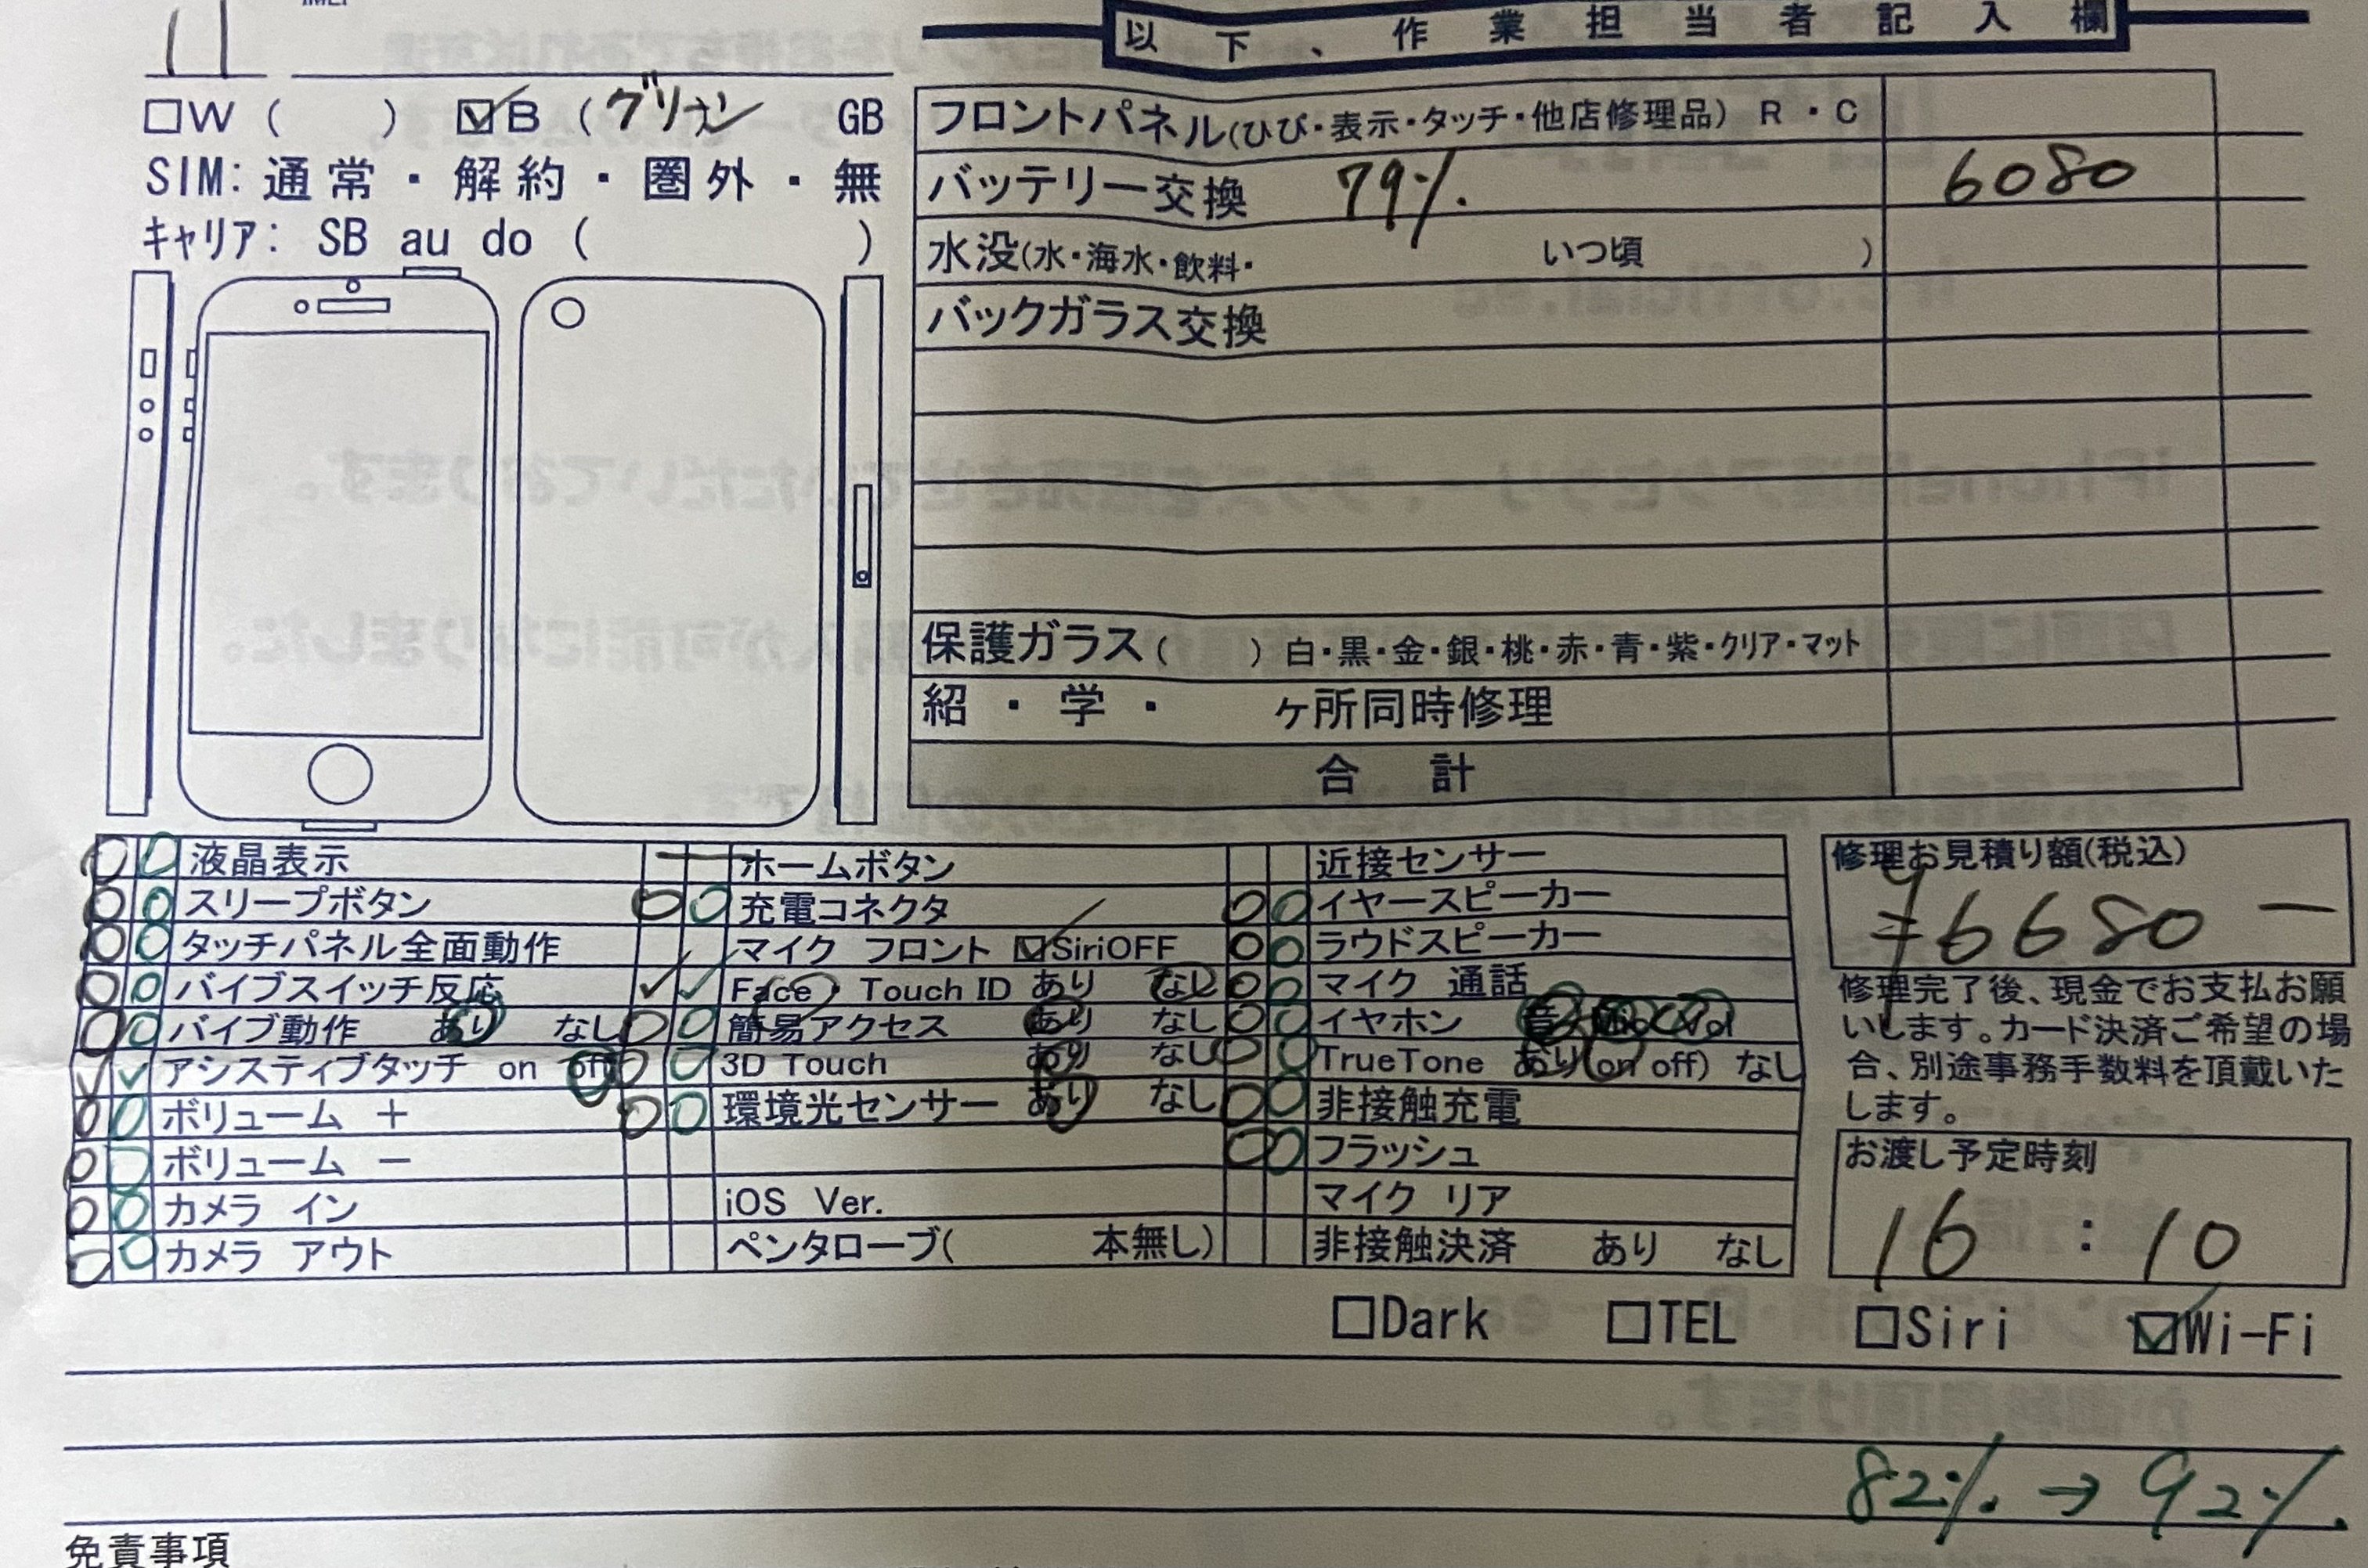 11
以下、作業担当者記入欄
□W（　　）☑B（グリーン GB
SIM: 通常・解約・圏外・無
ｷｬﾘｱ: SB au do（　　）
フロントパネル(ひび・表示・タッチ・他店修理品) R・C
バッテリー交換 79% 6080
水没(水・海水・飲料・　　いつ頃　　)
バックガラス交換
保護ガラス（　　）白・黒・金・銀・桃・赤・青・紫・ｸﾘｱ・ﾏｯﾄ
紹・学・　　ヶ所同時修理
合計
液晶表示
スリープボタン
タッチパネル全面動作
バイブスイッチ反応
バイブ動作 あり なし
アシスティブタッチ on off
ボリューム ＋
ボリューム －
カメラ イン
カメラ アウト
ホームボタン
充電コネクタ
マイク フロント ☑SiriOFF
Face・Touch ID あり なし
簡易アクセス あり なし
3D Touch あり なし
環境光センサー あり なし
iOS Ver.
ペンタローブ(　　本無し)
近接センサー
イヤースピーカー
ラウドスピーカー
マイク 通話
イヤホン 音 Vol
TrueTone あり(on off) なし
非接触充電
フラッシュ
マイク リア
非接触決済 あり なし
修理お見積り額(税込)
¥6680－
修理完了後、現金でお支払お願
いします。カード決済ご希望の場
合、別途事務手数料を頂戴いた
します。
お渡し予定時刻
16 : 10
□Dark □TEL □Siri ☑Wi-Fi
82% → 92%
免責事項